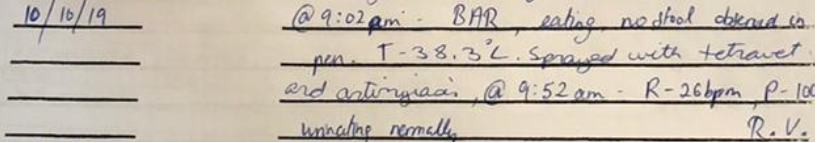 10/10/19 @ 9:02am - BAR, eating, no stool observed in
pen. T-38.3°C. Sprayed with tetravet
and @ 9:52 am - R-26bpm, P-100
urinating normally R.V.